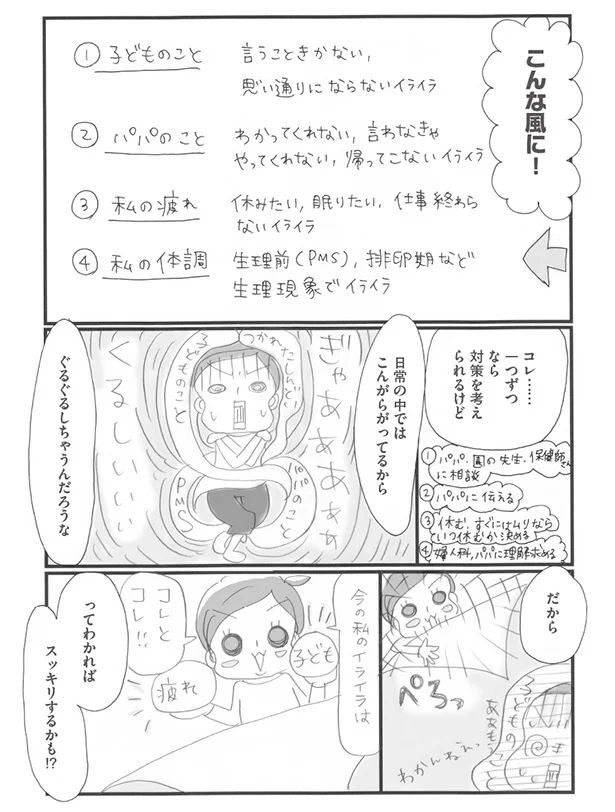 こんな風に!
① 子どものこと 言うこときかない,
思い通りにならないイライラ
② パパのこと わかってくれない, 言わなきゃ
やってくれない, 帰ってこないイライラ
③ 私の疲れ 休みたい, 眠りたい, 仕事終わら
ないイライラ
④ 私の体調 生理前(PMS), 排卵期など
生理現象でイライラ
コレ……
一つずつ
なら
対策を考え
られるけど
① パパ, 園の先生・保健師さん
に相談
② パパに伝える
③ 休む, すぐにはムリなら
いつ休むか決める
④ 婦人科, パパに理解求める
日常の中では
こんがらがってるから
ぎゃああああぁ
つかれたしんどい
子どものこと
パパのこと
PMS
くるしいいい
ぐるぐるしちゃうんだろうな
だから
ぺろっ
子どもの
ああもうっ
わかんねえっ
今の私のイライラは
子ども
疲れ
コレと
コレ!!
ってわかれば
スッキリするかも!?